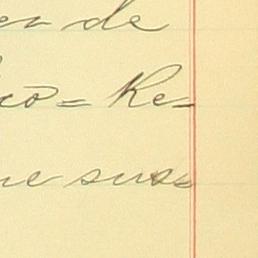 en de
co = Re-
ue suas